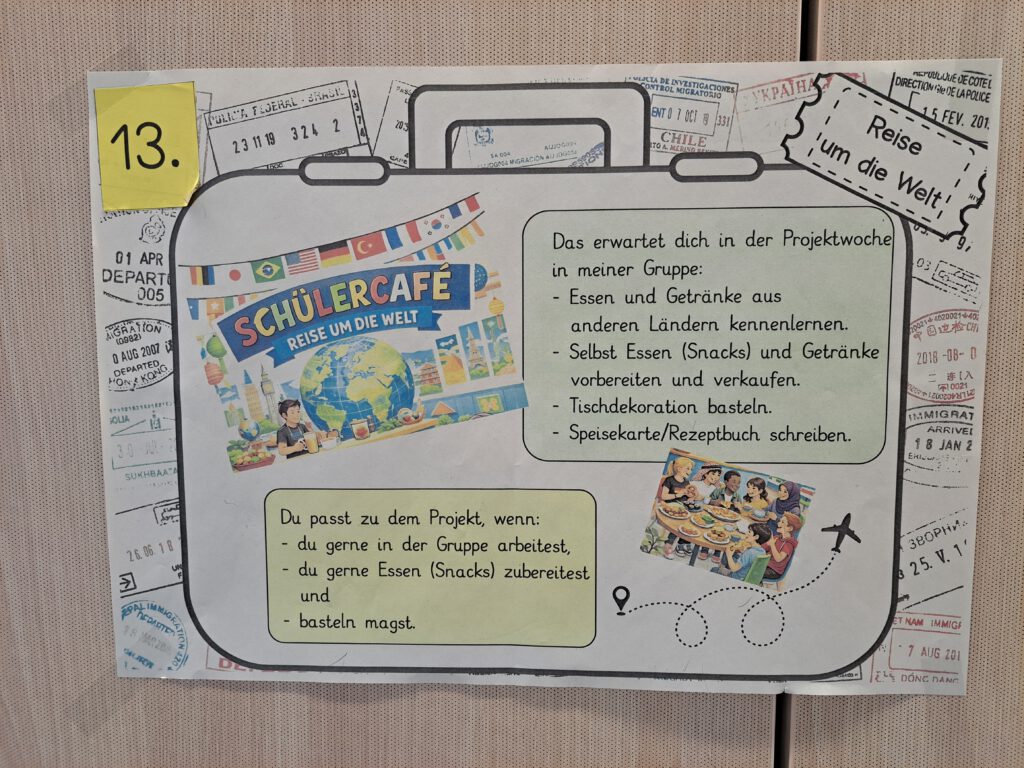 13.
POLICIA FEDERAL - BRASIL
23 11 19 324 2
POLICIA DE INVESTIGACIONES
CONTROL MIGRATORIO
CHILE
УКРАЇНА
REPUBLIQUE DE COTE
DIRECTION Gle DE LA POLICE
15 FEV. 201
Reise
um die Welt
01 APR
DEPART
005
SCHÜLERCAFÉ
REISE UM DIE WELT
Das erwartet dich in der Projektwoche
in meiner Gruppe:
- Essen und Getränke aus
anderen Ländern kennenlernen.
- Selbst Essen (Snacks) und Getränke
vorbereiten und verkaufen.
- Tischdekoration basteln.
- Speisekarte/Rezeptbuch schreiben.
HONG KONG
SUKHBAATA
IMMIGRAT
ARRIVE
18 JAN 2
Du passt zu dem Projekt, wenn:
- du gerne in der Gruppe arbeitest,
- du gerne Essen (Snacks) zubereitest
und
- basteln magst.
26.06 18
25. V. 1
ET NAM IMMIGR
7 AUG 201
DONG DANG